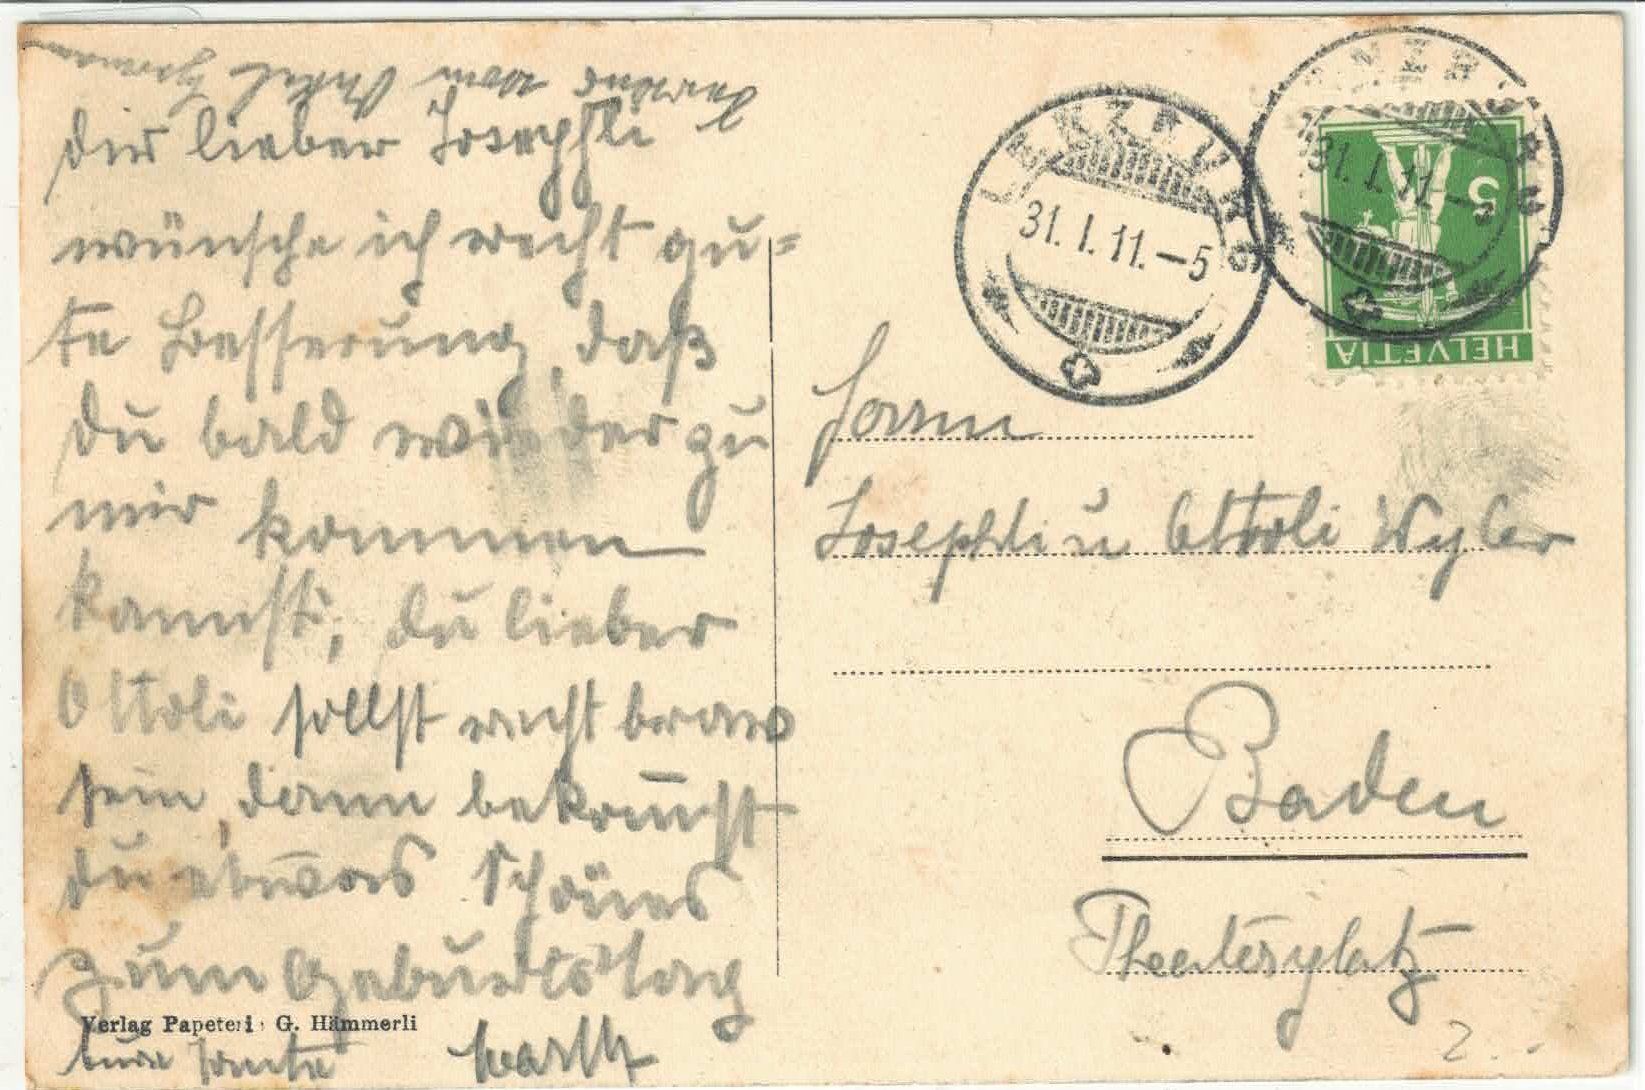 Dir lieber Josephli
wünsche ich recht gu=
te Besserung, daß
du bald wieder zu
mir kommen
kannst, du lieber
Ottoli sollst recht brav
sein, dann bekom̄st
du etwas Schönes
zum Geburtstag
eure Tante
vom Onkel
Verlag Papeteri G. Hämmerli
LENZBURG
31. I. 11. –5
31. I. 11. –5
5
HELVETIA
Herrn
Josephli u Ottoli Wyler
Baden
Theaterplatz
2